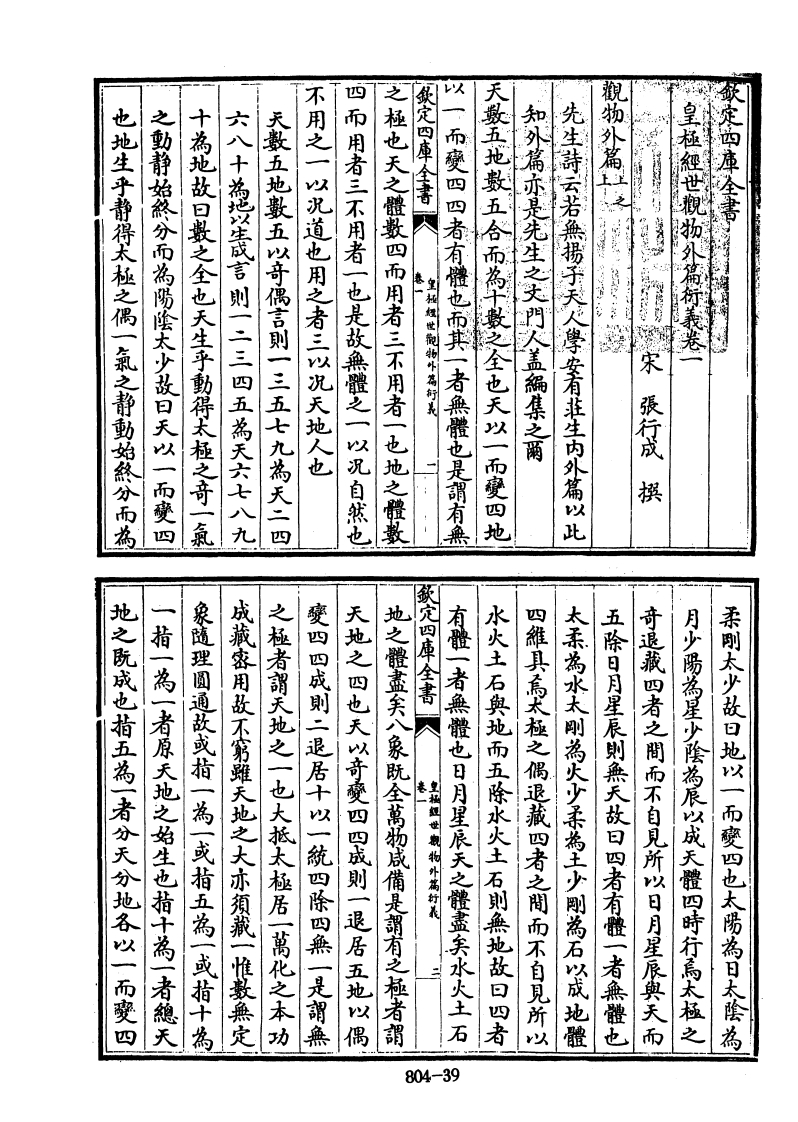 欽定四庫全書
皇極經世觀物外篇衍義卷一
宋 張行成 撰
觀物外篇上之上
先生詩云若無揚子天人學安有莊生內外篇以此
知外篇亦是先生之文門人盖編集之爾
天數五地數五合而為十數之全也天以一而變四地
以一而變四四者有體也而其一者無體也是謂有無
欽定四庫全書
皇極經世觀物外篇衍義
卷一
一
之極也天之體數四而用者三不用者一也地之體數
四而用者三不用者一也是故無體之一以况自然也
不用之一以况道也用之者三以况天地人也
天數五地數五以奇偶言則一三五七九為天二四
六八十為地以生成言則一二三四五為天六七八九
十為地故曰數之全也天生乎動得太極之奇一氣
之動靜始終分而為陽陰太少故曰天以一而變四
也地生乎靜得太極之偶一氣之靜動始終分而為
柔剛太少故曰地以一而變四也太陽為日太陰為
月少陽為星少陰為辰以成天體四時行焉太極之
奇退藏四者之間而不自見所以日月星辰與天而
五除日月星辰則無天故曰四者有體一者無體也
太柔為水太剛為火少柔為土少剛為石以成地體
四維具焉太極之偶退藏四者之間而不自見所以
水火土石與地而五除水火土石則無地故曰四者
有體一者無體也日月星辰天之體盡矣水火土石
欽定四庫全書
皇極經世觀物外篇衍義
卷一
二
地之體盡矣八象既全萬物咸備是謂有之極者謂
天地之四也天以奇變四四成則一退居五地以偶
變四四成則二退居十以一統四除四無一是謂無
之極者謂天地之一也大抵太極居一萬化之本功
成藏密用故不窮雖天地之大亦須藏一惟數無定
象隨理圓通故或指一為一或指五為一或指十為
一指一為一者原天地之始生也指十為一者總天
地之既成也指五為一者分天分地各以一而變四
804-39